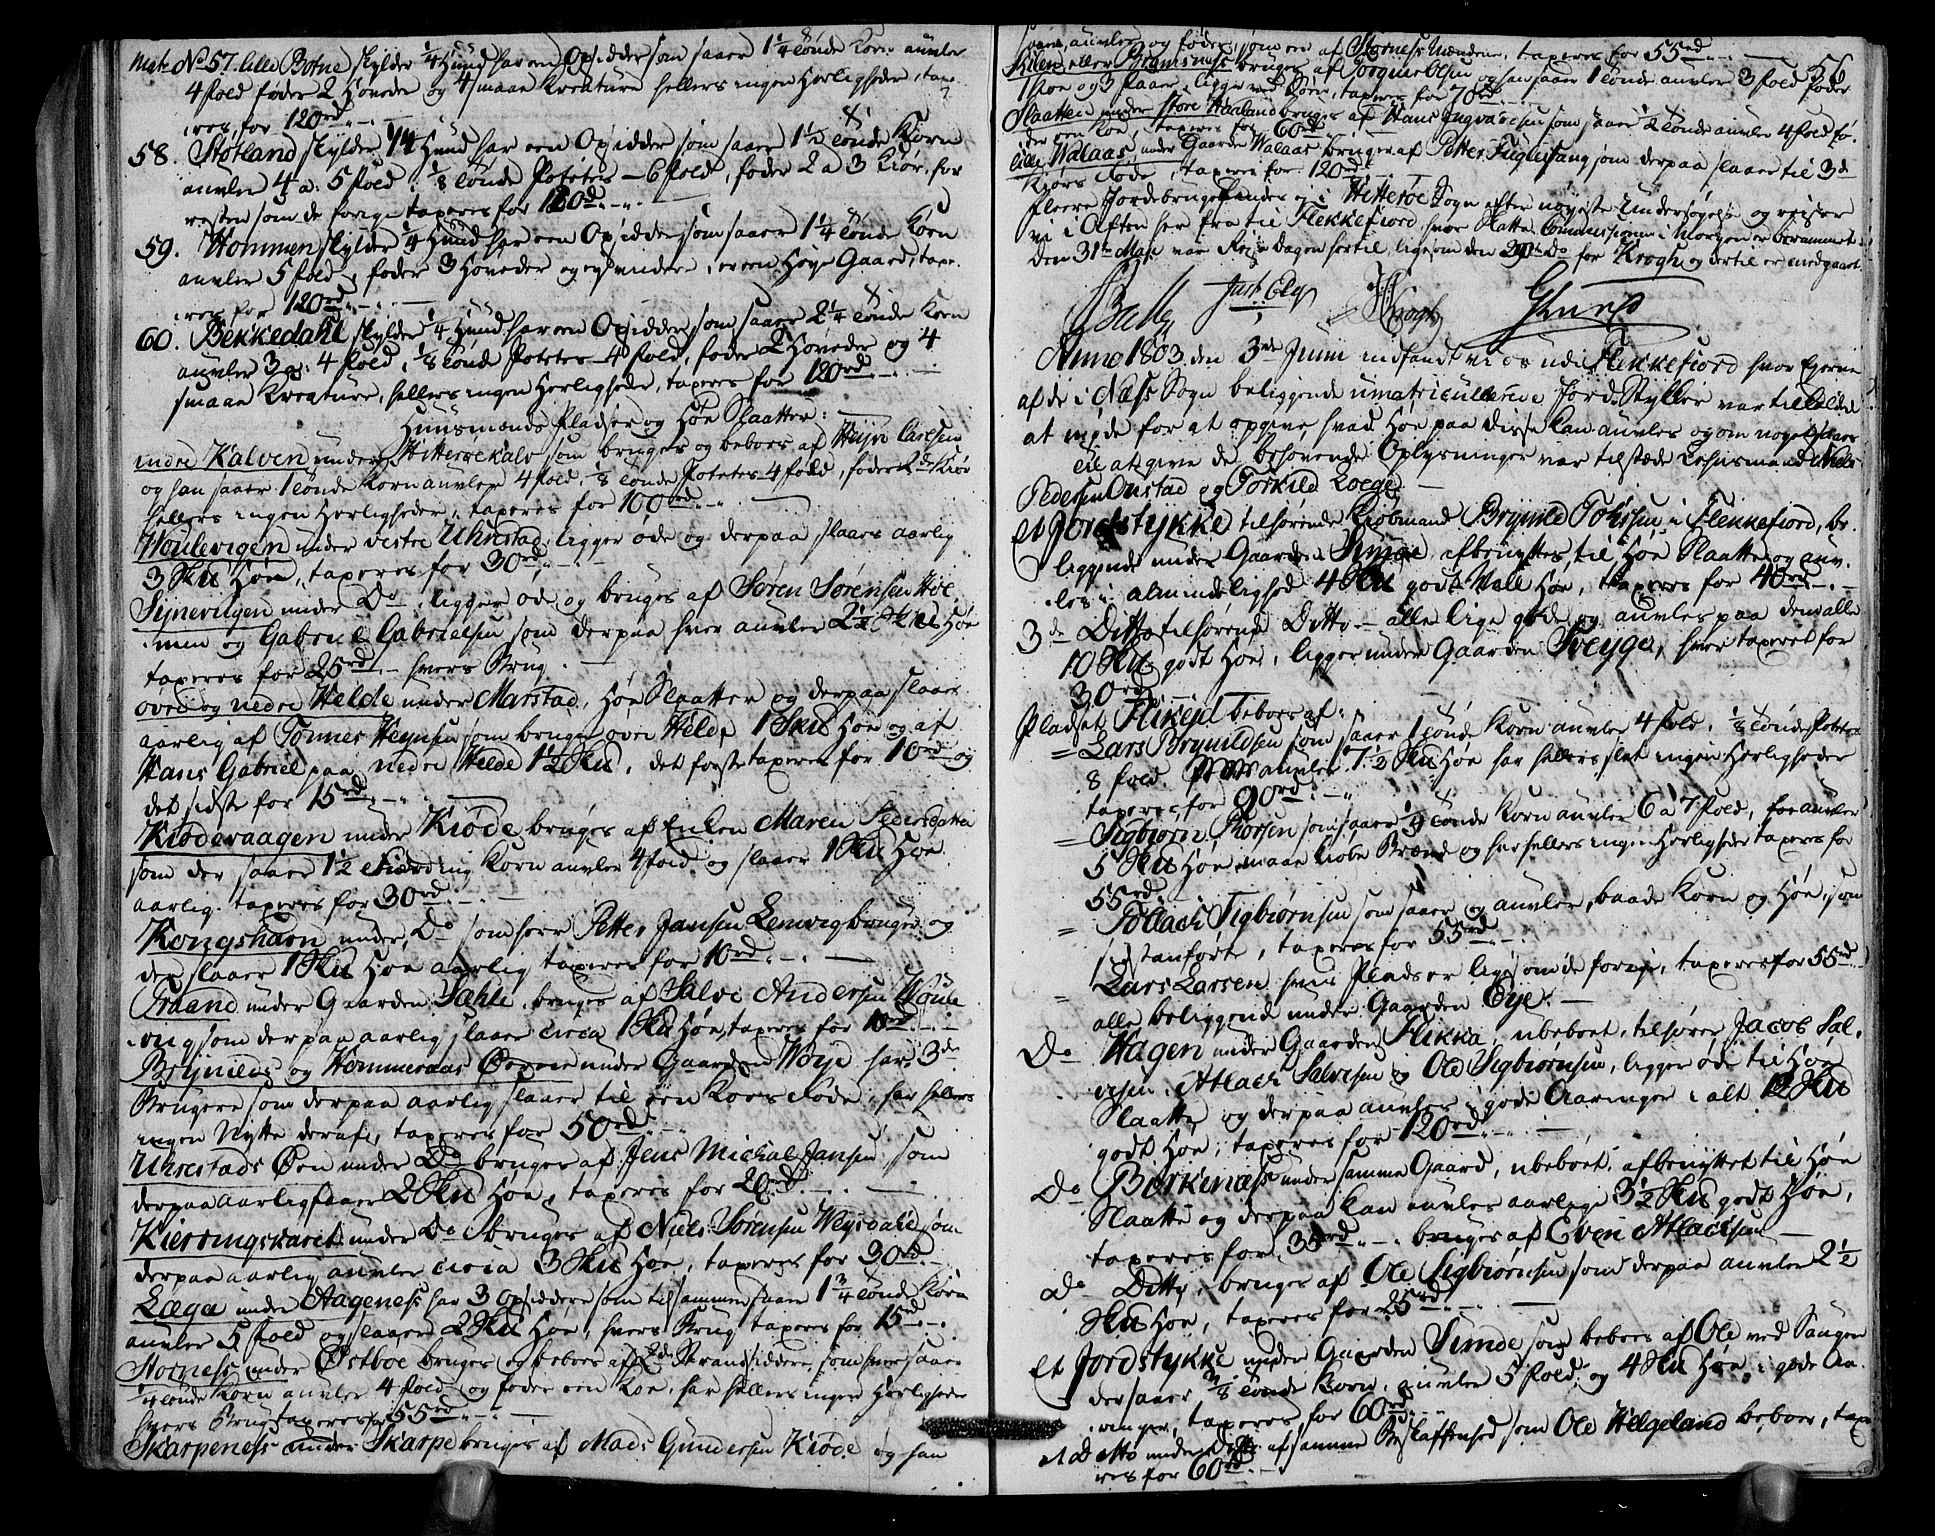 Mat: No 57. lille Botne skylder 1/4 Huud har een Opsidder som saaer 1 1/4 tønde Korn auvler
4 fold føder 2 Høveder og 4 smaae Kreature hellers ingen Herligheder, taxe-
res for 120rd
58. Stotland skylder 1/4 Huud har een Opsidder som saaer 1 1/2 tønde Korn
auvler 4 a: 5 fold, 1/8 tønde Potetes – 6 fold, føder 2 a 3 Kiør, for
resten som de forrige taxeres for 120rd
59. Hommen skylder 1/4 Huud har een Opsidder som saaer 1 1/4 tønde Korn
auvler 5 fold, føder 3 Høveder og ey mindere, er een Høye Gaard, taxe-
res for 120rd
60. Bekkedahl skylder 1/4 Huud har een Opsidder som saaer 2 1/4 tønde Korn
auvler 3 a: 4 fold, 1/8 tønde Potetes 4 fold, føder 2 Høveder og 4
smaae Kreature, hellers ingen Herligheder, taxeres for 120rd
Huusmands Pladser og Høe Slaatter:
indre Kalven under Hitterøe Kalv som bruges og beboes af Carlsen
og han saaer 1 tønde Korn auvler 4 fold, 1/8 tønde Potetes 4 fold, føder 2de Kiør
hellers ingen Herligheder, taxeres for 100rd
Woulevigen under vestre Uhrstad ligger øde og derpaa slaaes aarlig
3 Høe, taxeres for 30rd
Synevigen under Do, ligger øde og bruges af Søren Sørensen
og Gabriel Gabrielsen som derpaa hver auvler 2 1/2 Høe
taxeres for 25rd hvers Brug
øvre og nedre Helde under Marstad, Høe Slaatter og derpaa slaaes
aarlig af Tønnes Heynsen som bruger øvre Helde 1 Høe og af
Hans Gabriel paa nedre Helde 1 1/2, det første taxeres for 10rd og
det sidste for 15rd
Kiødevaagen under Kiøde bruges af Enken Maren Pedersdatter
som der saaer 1 1/2 Fierding Korn auvler 4 fold og slaaer 1 Høe
aarlig, taxeres for 30rd
Kongshavn under Do som hører Petter Jansen Lemvig bruger og
der slaaer 1 Høe aarlig taxeres for 10rd
Traand under Gaarden bruges af Salve Andersen
som derpaa aarlig slaaer circa 1 Høe, taxeres for 10rd
og Hommeraas under Gaarden har 3de
Brugere som derpaa aarlig slaaer til een Koes Føde, har hellers
ingen Nytte deraf, taxeres for 50rd
Uhrestads Øen under Do bruges af Jens Michal Jansen som
derpaa aarlig saaer 2 Høe, taxeres for 20rd
Kierringskaret under Do bruges af Niels Sørensen som
derpaa aarlig auvler circa 3 Høe, taxeres for 30rd
Læga under Aagenæss har 3 opsiddere som tilsammen saaer 1 3/4 tønde Korn
auvler 5 fold og slaaer 2 Høe, hvers Brug taxeres for 15rd
Stornæss under Østbøe bruges og beboes af 2de Strandsiddere, som hver saaer
1/4 tønde Korn auvler 4 fold og føder een Koe, har hellers ingen Herligheder
hvers Brug taxeres for 55rd
Skarpenæss under Skarpe bruges af Mads Gundersen Kiøde og han
56
saaer, auvler og føder, som een af Stornæss Mændene, taxeres for 55rd
bruges af og han saaer 1 tønde auvler 3 fold føder
1 Koe og 3 Faar, ligger ved Søen, taxeres for 70rd
Slaatten under store Haaland bruges af Hans som saaer 2 tønde auvler 4 fold fø-
der een Koe, taxeres for 60rd
lille Walaas under Gaarden Walaas bruges af Petter Fuglesang som derpaa slaaer til 3de
Kiørs Føde, taxeres for 120rd
Fleere Jordebruge findes ej i Hitterøe Sogn efter nøyeste Undersøgelse og reiser
vi i Aften her fra til Flekkefiord, hvor Matr: Commissionen i Morgen er berammet.
Den 31te Maii var Reise Dagen hertil, ligesom den 29de Do for Krogh og dertil er medgaaet
Just Ely
Krogh
Anno 1803 den 3de Junii indfandt vi os udi Flekkefiord hvor Ejerne
af de i Næss Sogn beliggende umatriculerede Jord Stykker var tilholdet
at møde for at opgive, hvad Høe paa disse kan auvles og om noget saaes
til at give de behøvende Oplysninger var tilstæde Lehnsmand Niels
Pedersen Onstad og Torkild Loege
et Jordstykke tilhørende Kiøbmand Brynild Tohrsen i Flekkefiord, be-
liggende under Gaarden Simde, afbenyttes til Høe Slaatte og auv-
les i almindelighed 4 godt Høe, taxeres for 40rd
3de Ditto tilhørende Ditto – alle lige gode og auvles paa dem alle
10 godt Høe, ligger under Gaarden Tveyge, hver taxeret for
30rd
Pladset Flikeid beboes af:
= Lars Brynildsen som saaer 1 tønde Korn auvler 4 fold, 1/8 tønde Potetes
8 fold, auvler 7 1/2 Høe har hellers slet ingen Herligheder
taxeres for 90rd
= Sigbiørn Thorsen som saaer 1/4 tønde Korn auvler 6 a 7 fold, føe auvler
5 Høe maae kiøbe Brænd og har hellers ingen Herligheder taxeres for
55rd
= Tollach Sigbiørnsen som saaer og auvler, baade Korn og Høe, som
sidstanførte, taxeres for 55rd
= Lars Larsen hvis Plads er ligesom de forrige, taxeres for 55rd
alle beliggende under Gaarden Eye.
Do Hagen under Gaarden Flikka, ubeboet, tilhører Jacob Sal-
vesen, Atlach Salvesen og Ole Sigbiørnsen, ligger øde til Høe
Slaatte, og derpaa auvles i gode Aaringer i alt 12
godt Høe, taxeres for 120rd
Do Birkenæss under samme Gaard, ubeboet, afbenyttet til Høe
Slaatte og derpaa kan auvles aarlig 3 1/2 godt Høe,
taxeres for 35rd bruges af Even Atlachsen
Do Ditto, bruges af Ole Sigbiørnsen som derpaa auvler 2 1/2
Høe, taxeres for 25rd
et Jordstykke under Gaarden Simde som beboes af Ole ved Saugen
der saaer 3/8 tønde Korn, auvler 5 fold, og 4 Høe, i gode Aa-
ringer, taxeres for 60rd
1 ditto under Ditto af samme Beskaffenhed som Ole Helgeland beboer, taxe-
res for 60rd